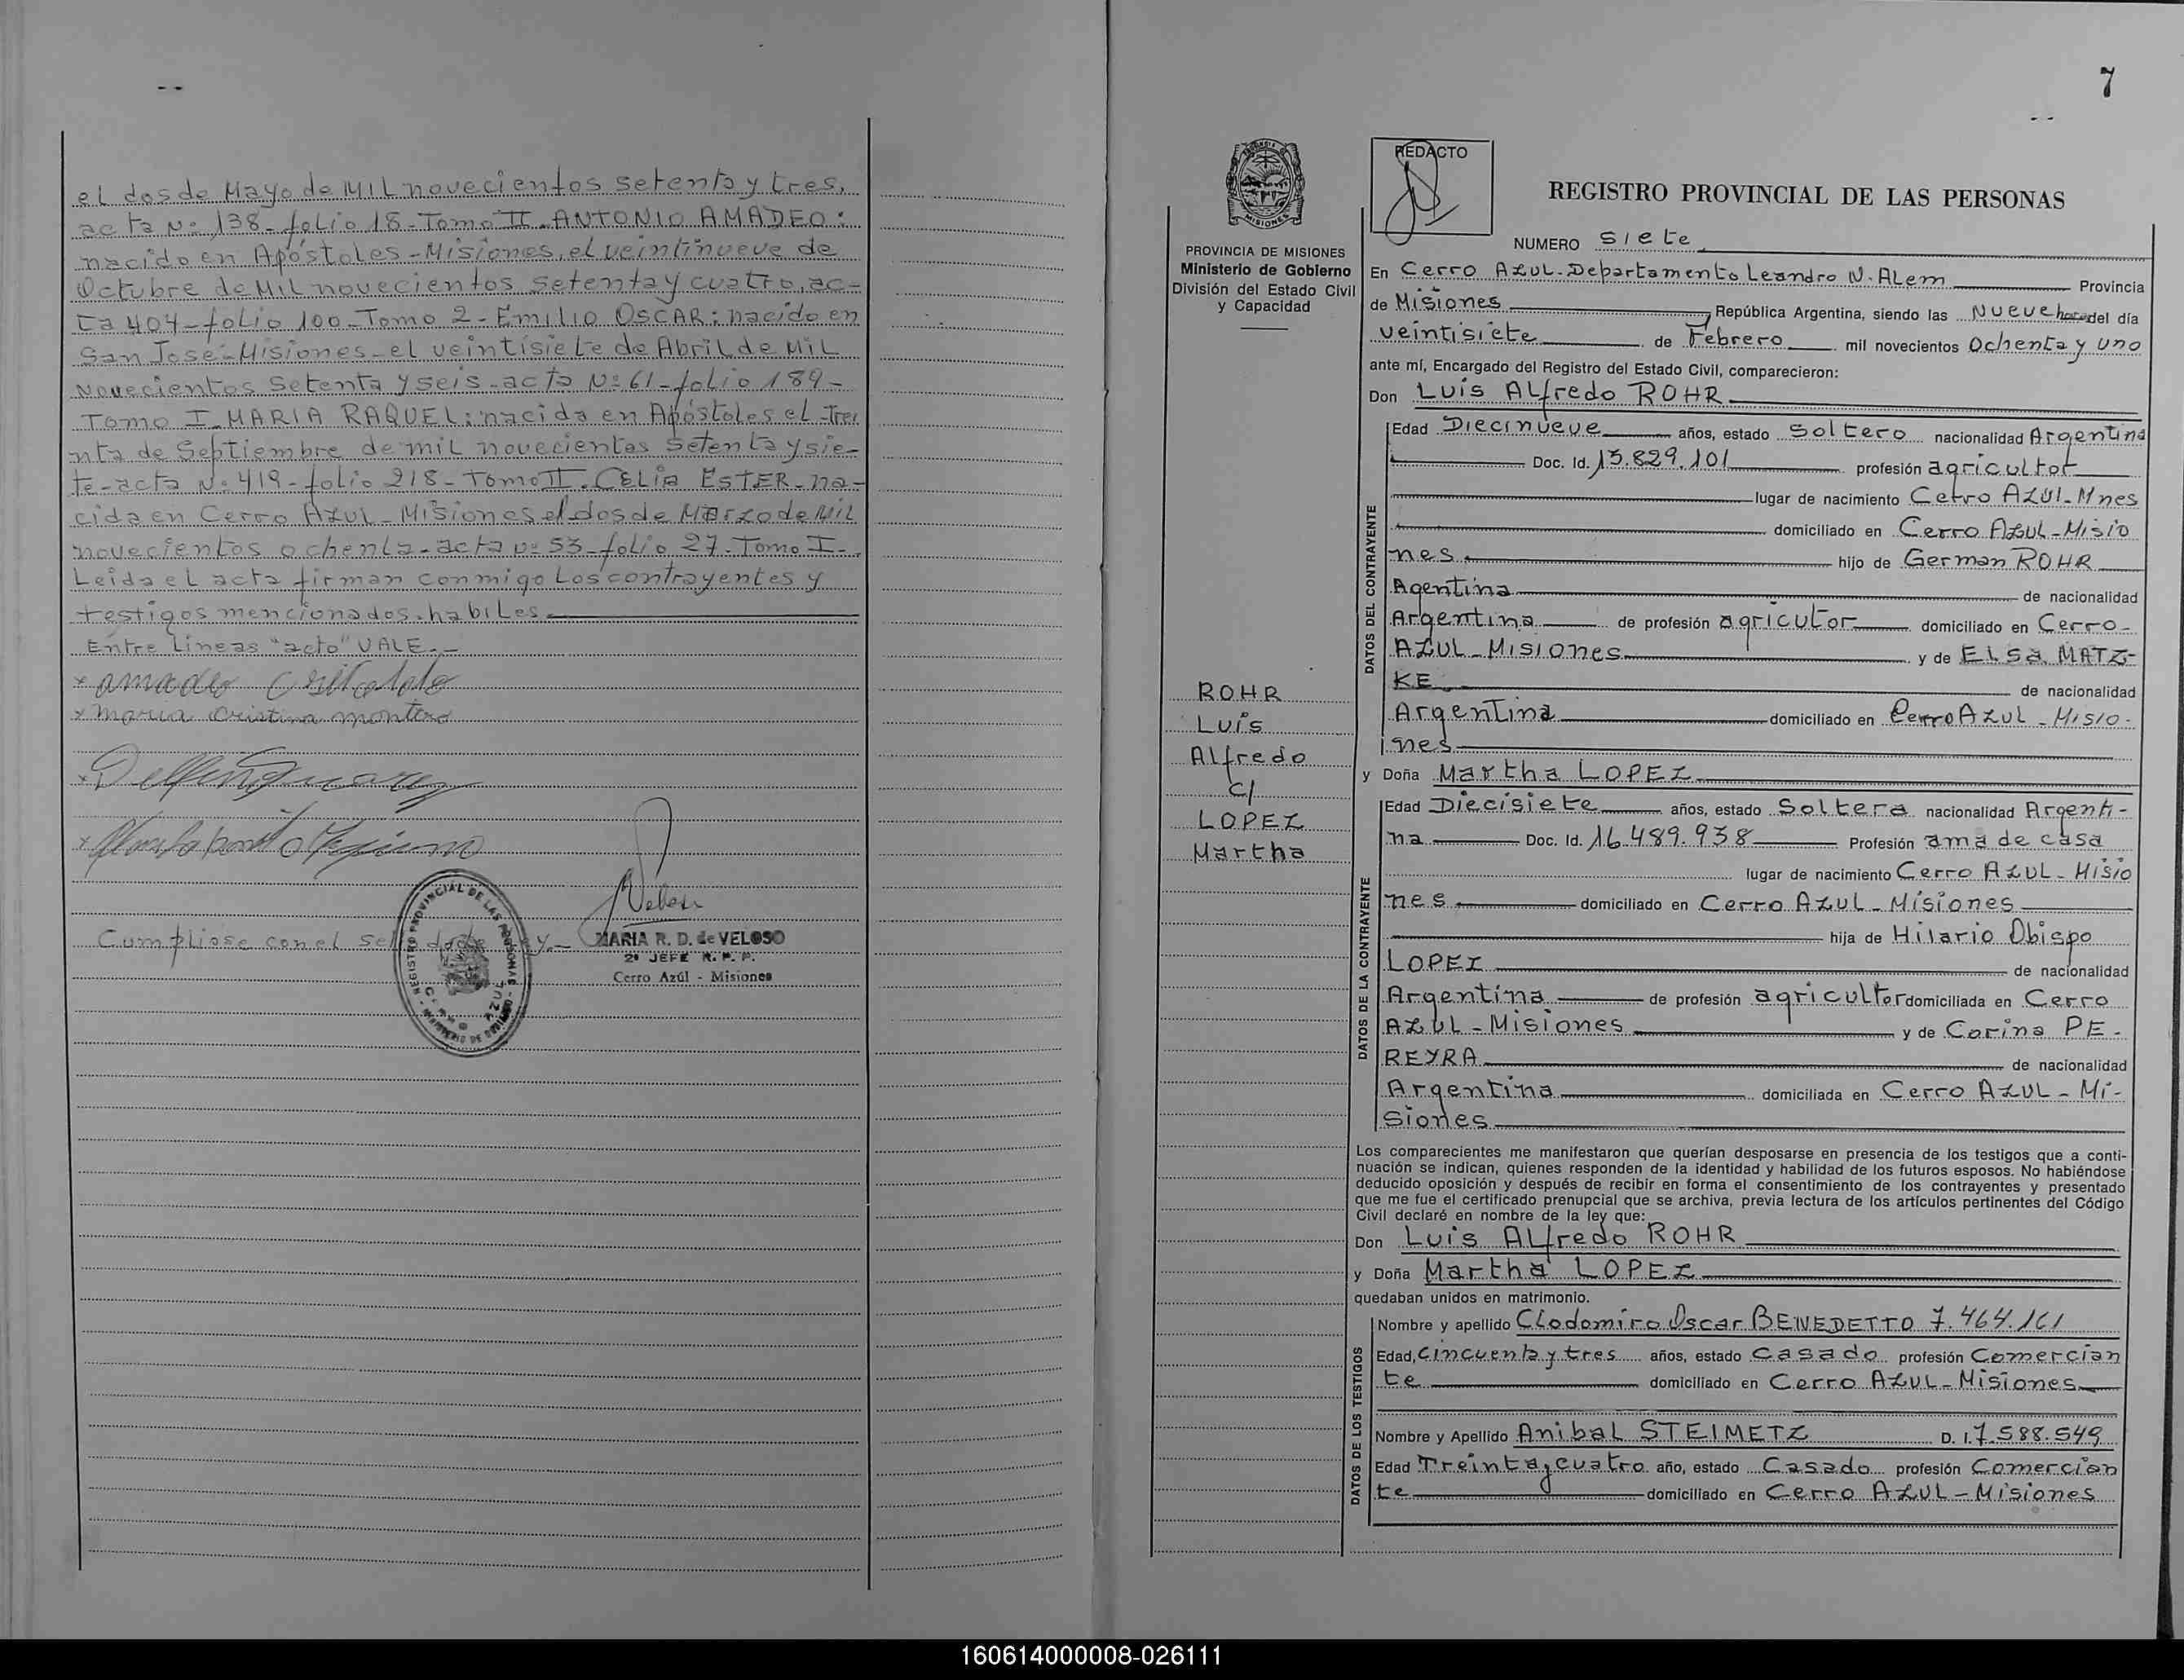 el dos de Mayo de MIL novecientos setenta y tres,
acta Nº 138- folio 18- Tomo II- ANTONIO AMADEO:
nacido en Apóstoles-Misiones, el veintinueve de
Octubre de MIL novecientos setenta y cuatro, ac-
ta 404- folio 100- Tomo 2- EMILIO OSCAR: nacido en
San José-Misiones- el veintisiete de Abril de MIL
Novecientos Setenta y seis- acta Nº 61- folio 189-
Tomo I. MARIA RAQUEL: nacida en Apóstoles el Trei
nta de Septiembre de mil novecientos setenta y sie-
te- acta Nº 419- folio 218- Tomo II. CELIA ESTER- na-
cida en Cerro Azul- Misiones el dos de Marzo de MIL
novecientos ochenta- acta nº 53- folio 27- Tomo I-
Leida el acta firman conmigo los contrayentes y
testigos mencionados. habiles
Entre líneas "acto" VALE.-
x amadeo
x maria cristina montero
Cumpliose con el
REGISTRO PROVINCIAL DE LAS PERSONAS
MARIA R. D. de VELOSO
2º JEFE R. P. P.
Cerro Azúl - Misiones
7
PROVINCIA DE MISIONES
Ministerio de Gobierno
División del Estado Civil
y Capacidad
ROHR
Luis
Alfredo
c/
LOPEZ
Martha
REDACTO
REGISTRO PROVINCIAL DE LAS PERSONAS
NUMERO Siete
En Cerro AZUL-Departamento Leandro N. ALem Provincia
de Misiones República Argentina, siendo las Nueve horas del día
veintisiete de Febrero mil novecientos Ochenta y uno
ante mí, Encargado del Registro del Estado Civil, comparecieron:
Don Luis ALfredo ROHR
DATOS DEL CONTRAYENTE
Edad Diecinueve años, estado Soltero nacionalidad Argentina
Doc. Id. 13.829.101 profesión agricultor
lugar de nacimiento Cerro AZUL-Mnes
domiciliado en Cerro AZUL-Misio
nes hijo de German ROHR
Agentina de nacionalidad
Argentina de profesión agricutor domiciliado en Cerro-
AZUL-Misiones y de ELSa MATZ-
KE de nacionalidad
Argentina domiciliado en Cerro AZUL-Misio-
nes
y Doña Martha LOPEZ
DATOS DE LA CONTRAYENTE
Edad Diecisiete años, estado Soltera nacionalidad Argenti-
na Doc. Id. 16.489.938 Profesión ama de casa
lugar de nacimiento Cerro AZUL-Misio
nes domiciliado en Cerro AZUL-Misiones
hija de Hilario Obispo
LOPEZ de nacionalidad
Argentina de profesión agricultor domiciliada en Cerro
AZUL-Misiones y de Corina PE-
REYRA de nacionalidad
Argentina domiciliada en Cerro AZUL-Mi-
siones
Los comparecientes me manifestaron que querían desposarse en presencia de los testigos que a conti-
nuación se indican, quienes responden de la identidad y habilidad de los futuros esposos. No habiéndose
deducido oposición y después de recibir en forma el consentimiento de los contrayentes y presentado
que me fue el certificado prenupcial que se archiva, previa lectura de los artículos pertinentes del Código
Civil declaré en nombre de la ley que:
Don Luis ALfredo ROHR
y Doña Martha LOPEZ
quedaban unidos en matrimonio.
DATOS DE LOS TESTIGOS
Nombre y apellido Clodomiro Oscar BENEDETTO 7.464.161
Edad, cincuenta y tres años, estado casado profesión Comercian
te domiciliado en Cerro AZUL-Misiones
Nombre y Apellido AnibaL STEIMETZ D. I. 7.588.549
Edad Treinta y cuatro año, estado Casado profesión Comercian
te domiciliado en Cerro AZUL-Misiones
160614000008-026111